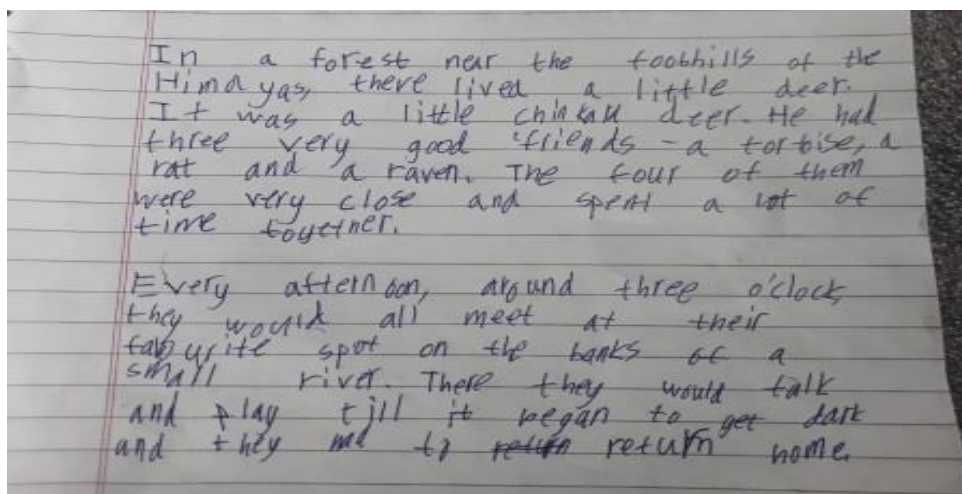 In a forest near the foothills of the
Himayas, there lived a little deer.
It was a little chinkau deer. He had
three very good friends - a tortoise, a
rat and a raven. The four of them
were very close and spent a lot of
time together.
Every afternoon, around three o'clock,
they would all meet at their
favourite spot on the banks of a
small river. There they would talk
and play till it began to get dark
and they to return home.